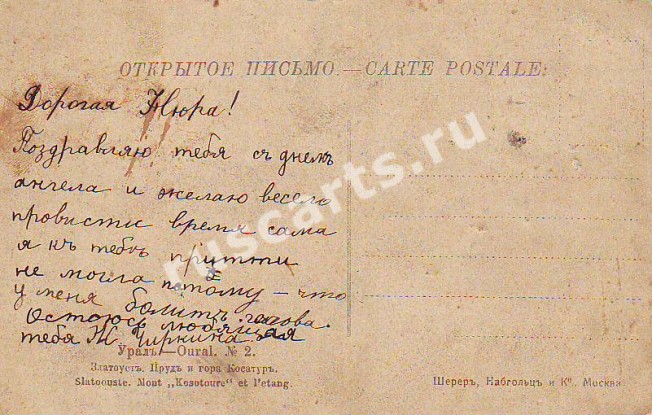 ОТКРЫТОЕ ПИСЬМО.—CARTE POSTALE:
Дорогая Нюра!
Поздравляю тебя съ днемъ
ангела и желаю весело
провисти время сама
я къ тебѣ притти
не могла потому – что
у меня болитъ голова.
Остоюсь любящая
тебя Н Чиркина
Уралъ—Oural. № 2.
Златоустъ. Прудъ и гора Косатуръ.
Slatoouste. Mont „Kosotoure" et l'etang.
Шереръ, Набгольцъ и Кº. Москва.
ruscarts.ru